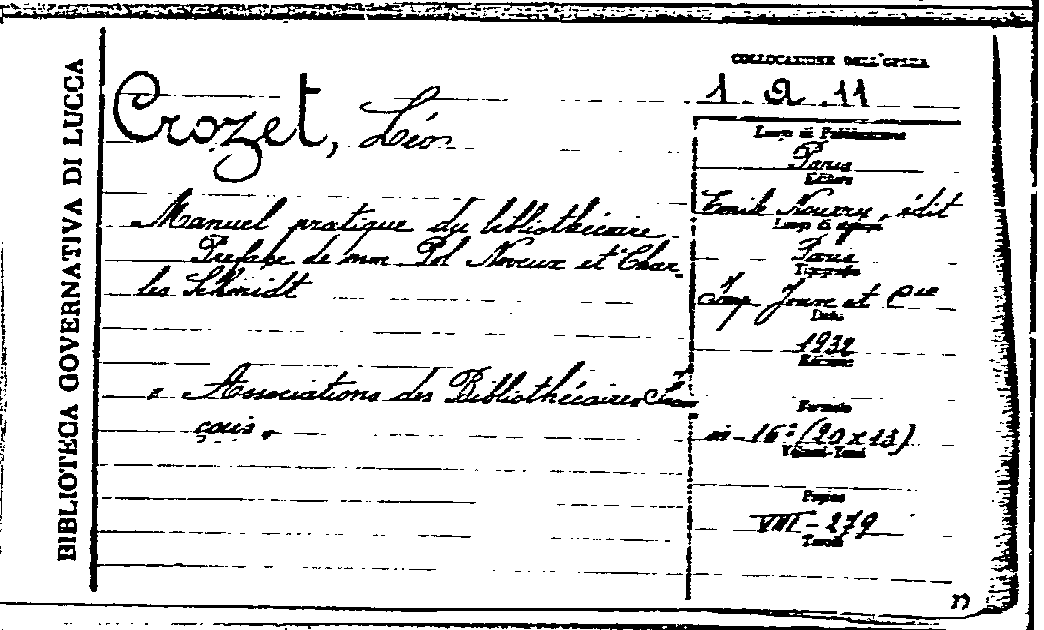 BIBLIOTECA GOVERNATIVA DI LUCCA
Crozet, Léon
Manuel pratique du bibliothécaire
Preface de mm Pol Neveux et Char
les Schmidt
" Associations des Bibliothécaires Fran
çais.
COLLOCAZIONE DELL'OPERA
1. a. 11
Luogo di Pubblicazione
Paris
Editore
Emile Nourry, édit
Luogo di stampa
Paris
Tipografia
Imp. Jouve et Cie
Data
1932
Formato
in-16° (20x13)
Volumi-Tomi
Pagine
VIII-279
Tavole